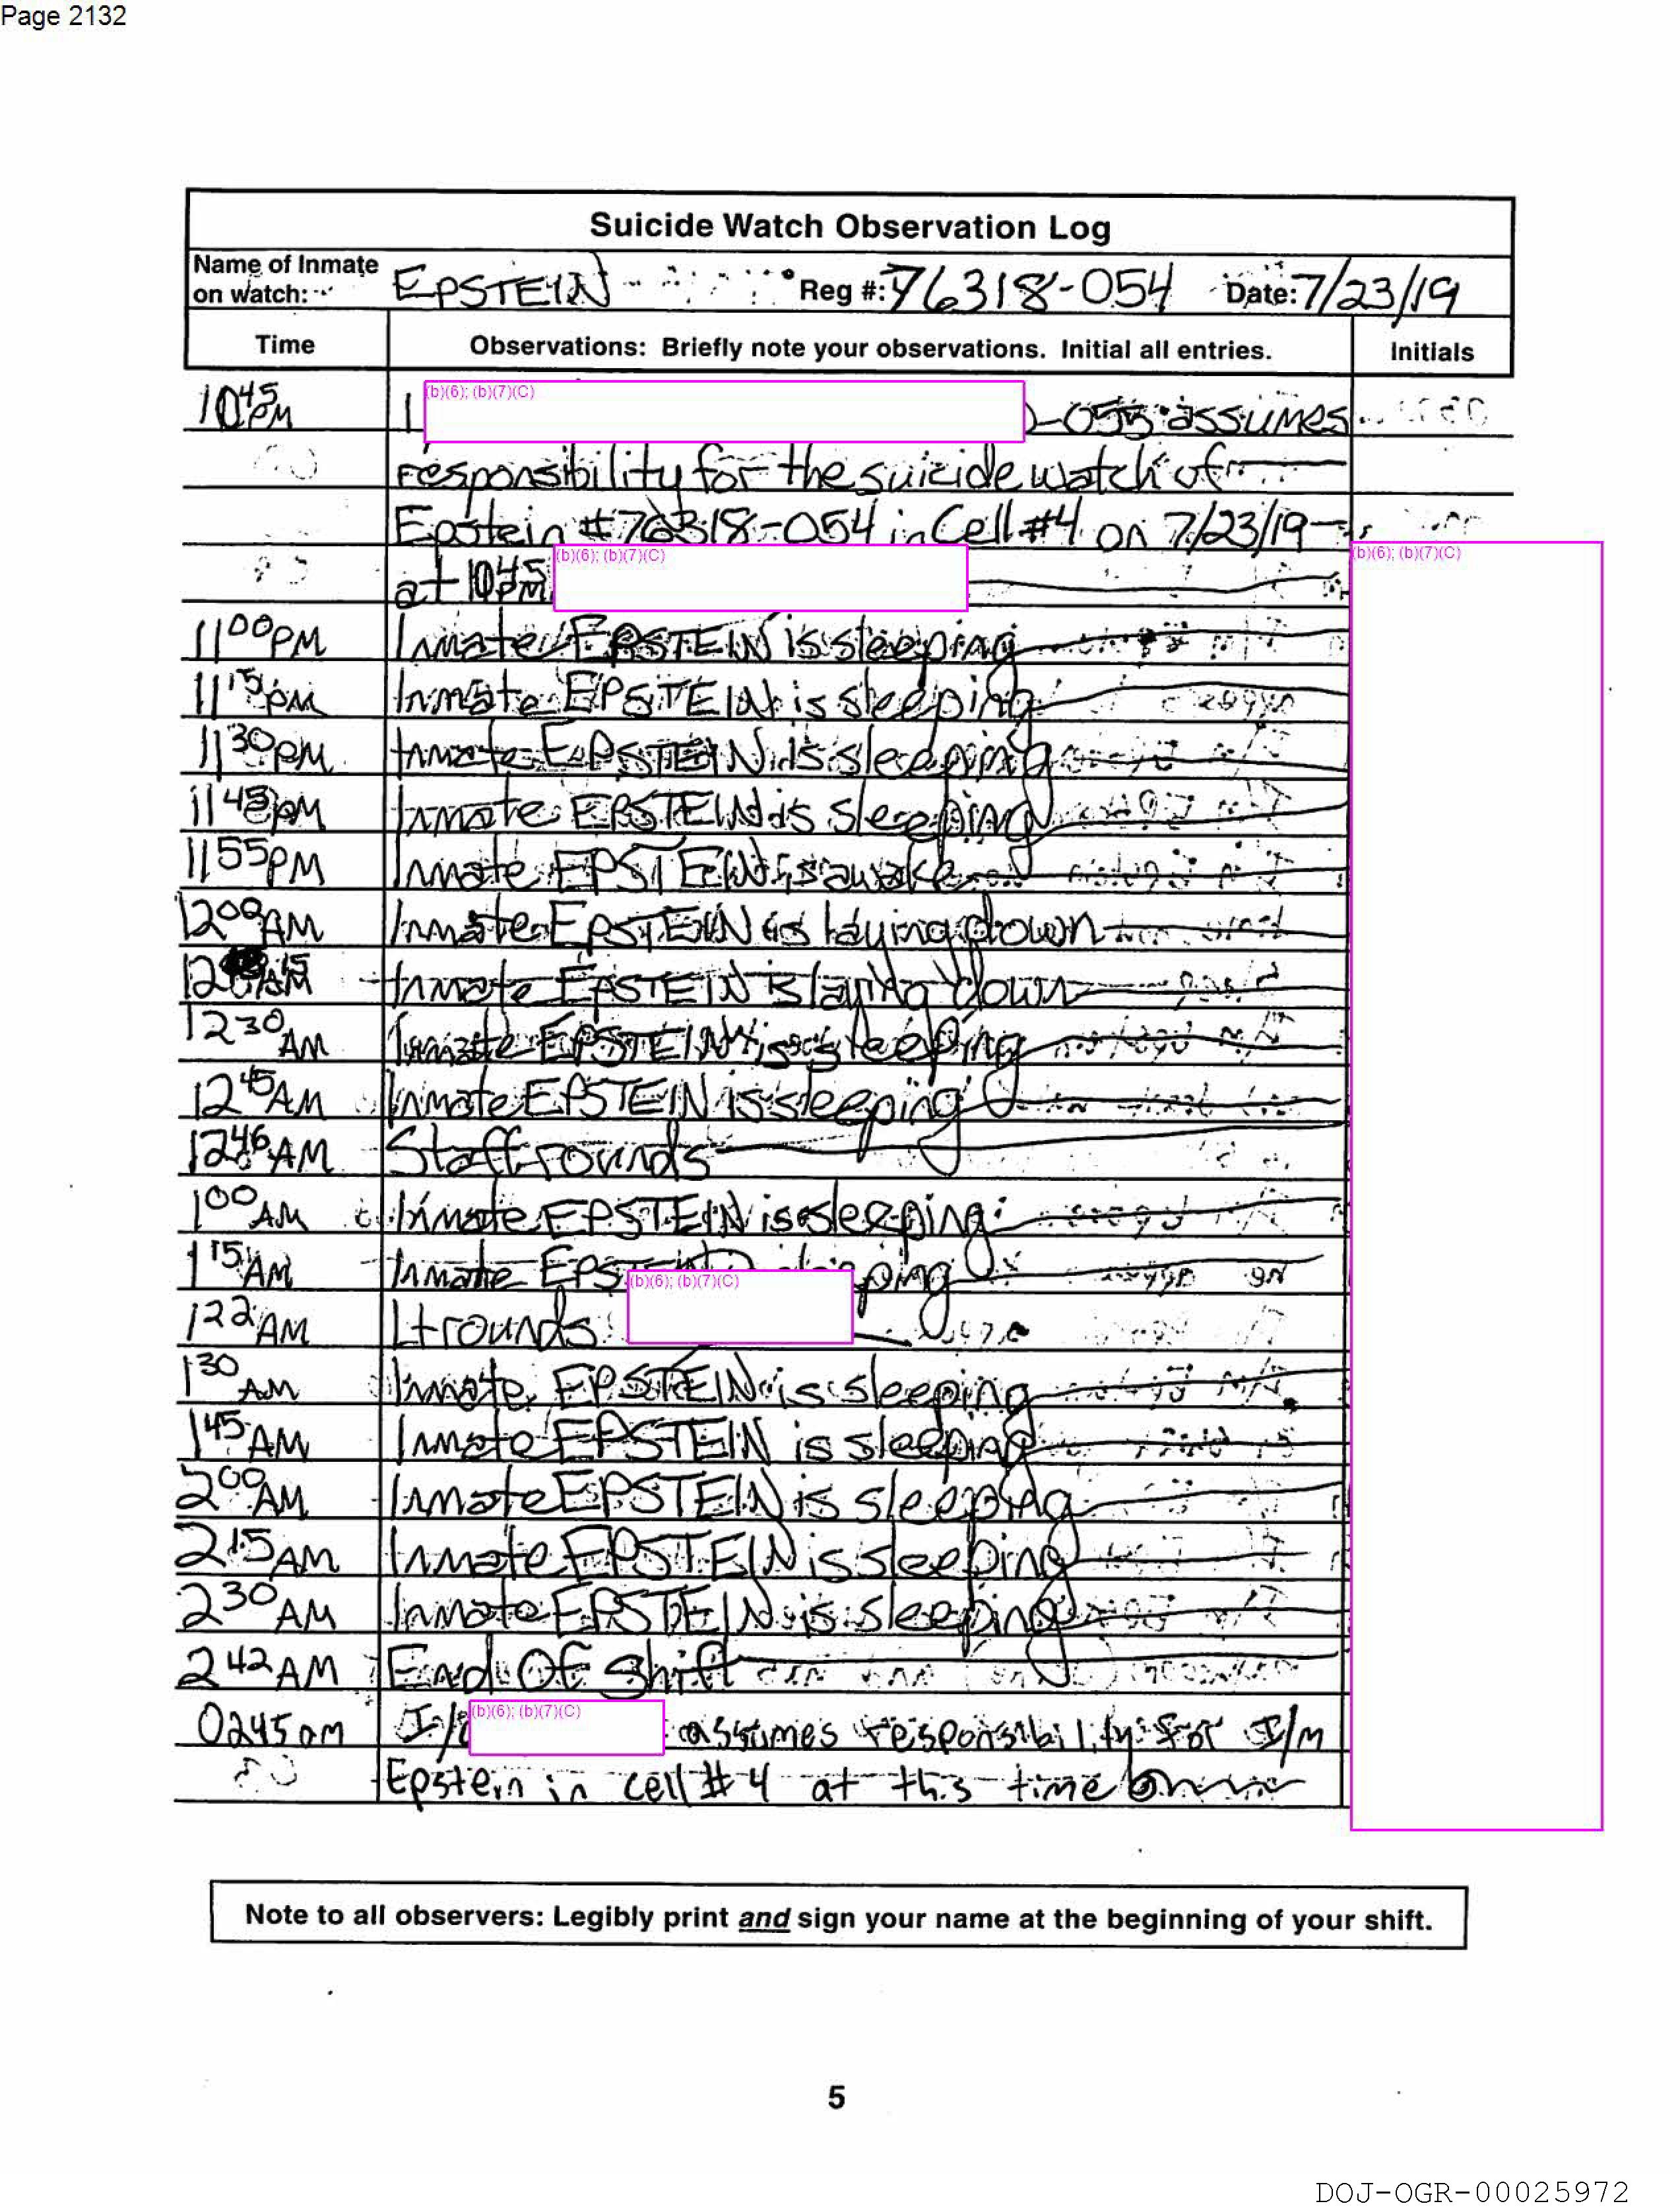 Page 2132
Suicide Watch Observation Log
Name of Inmate on watch: EPSTEIN Reg #: 76318-054 Date: 7/23/19
Time Observations: Briefly note your observations. Initial all entries. Initials
10 45 PM I (b)(6); (b)(7)(C) -055 assumes
responsibility for the suicide watch of
Epstein #76318-054 in Cell #4 on 7/23/19
at 10 45 PM (b)(6); (b)(7)(C) (b)(6); (b)(7)(C)
11 00 PM Inmate EPSTEIN is sleeping
11 15 PM Inmate EPSTEIN is sleeping
11 30 PM Inmate EPSTEIN is sleeping
11 45 PM Inmate EPSTEIN is sleeping
11 55 PM Inmate EPSTEIN is awake
12 00 AM Inmate EPSTEIN is laying down
12 15 AM Inmate EPSTEIN is laying down
12 30 AM Inmate EPSTEIN is sleeping
12 45 AM Inmate EPSTEIN is sleeping
12 46 AM Staff rounds
1 00 AM Inmate EPSTEIN is sleeping
1 15 AM Inmate
1 22 AM Lt rounds (b)(6); (b)(7)(C)
1 30 AM Inmate EPSTEIN is sleeping
1 45 AM Inmate EPSTEIN is sleeping
2 00 AM Inmate EPSTEIN is sleeping
2 15 AM Inmate EPSTEIN is sleeping
2 30 AM Inmate EPSTEIN is sleeping
2 42 AM End Of Shift
0245 am (b)(6); (b)(7)(C) assumes responsibility for I/m
Epstein in cell # 4 at this time
Note to all observers: Legibly print and sign your name at the beginning of your shift.
5
DOJ-OGR-00025972